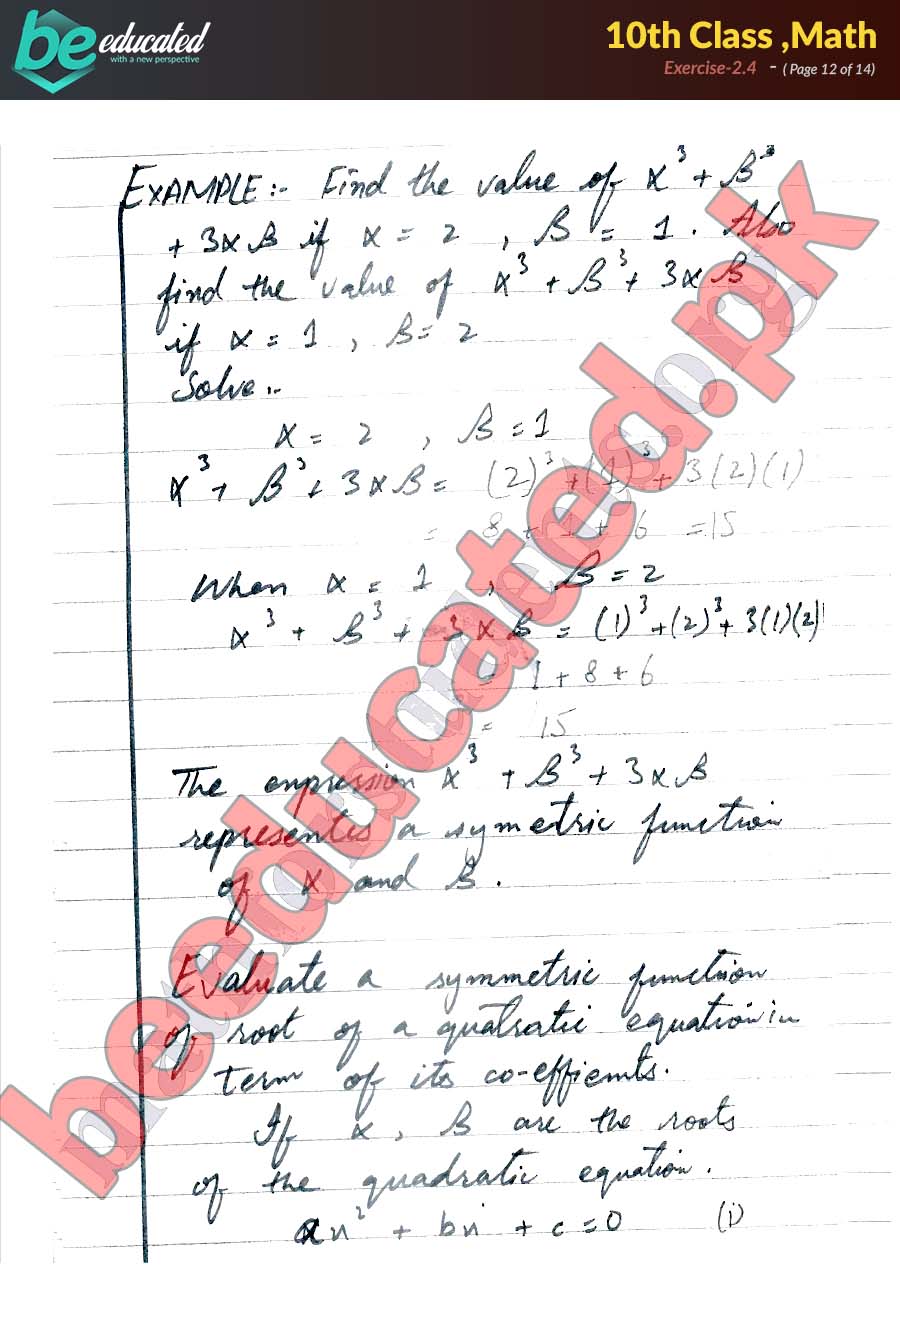 be educated
with a new perspective
10th Class ,Math
Exercise-2.4 - ( Page 12 of 14)
EXAMPLE:- Find the value of α³ + β³
+ 3αβ if α = 2 , β = 1. Also
find the value of α³ + β³ + 3αβ
if α = 1 , β = 2
Solve:-
α = 2 , β = 1
α³ + β³ + 3αβ = (2)³ + (1)³ + 3(2)(1)
= 8 + 1 + 6 = 15
When α = 1 , β = 2
α³ + β³ + 3αβ = (1)³ + (2)³ + 3(1)(2)
= 1 + 8 + 6
= 15
The expression α³ + β³ + 3αβ
represents a symetric function
of α and β.
Evaluate a symmetric function
of root of a quatratic equation in
term of its co-efficents.
If α, β are the roots
of the quadratic equation.
ax² + bx + c = 0 (i)
beeducated.pk